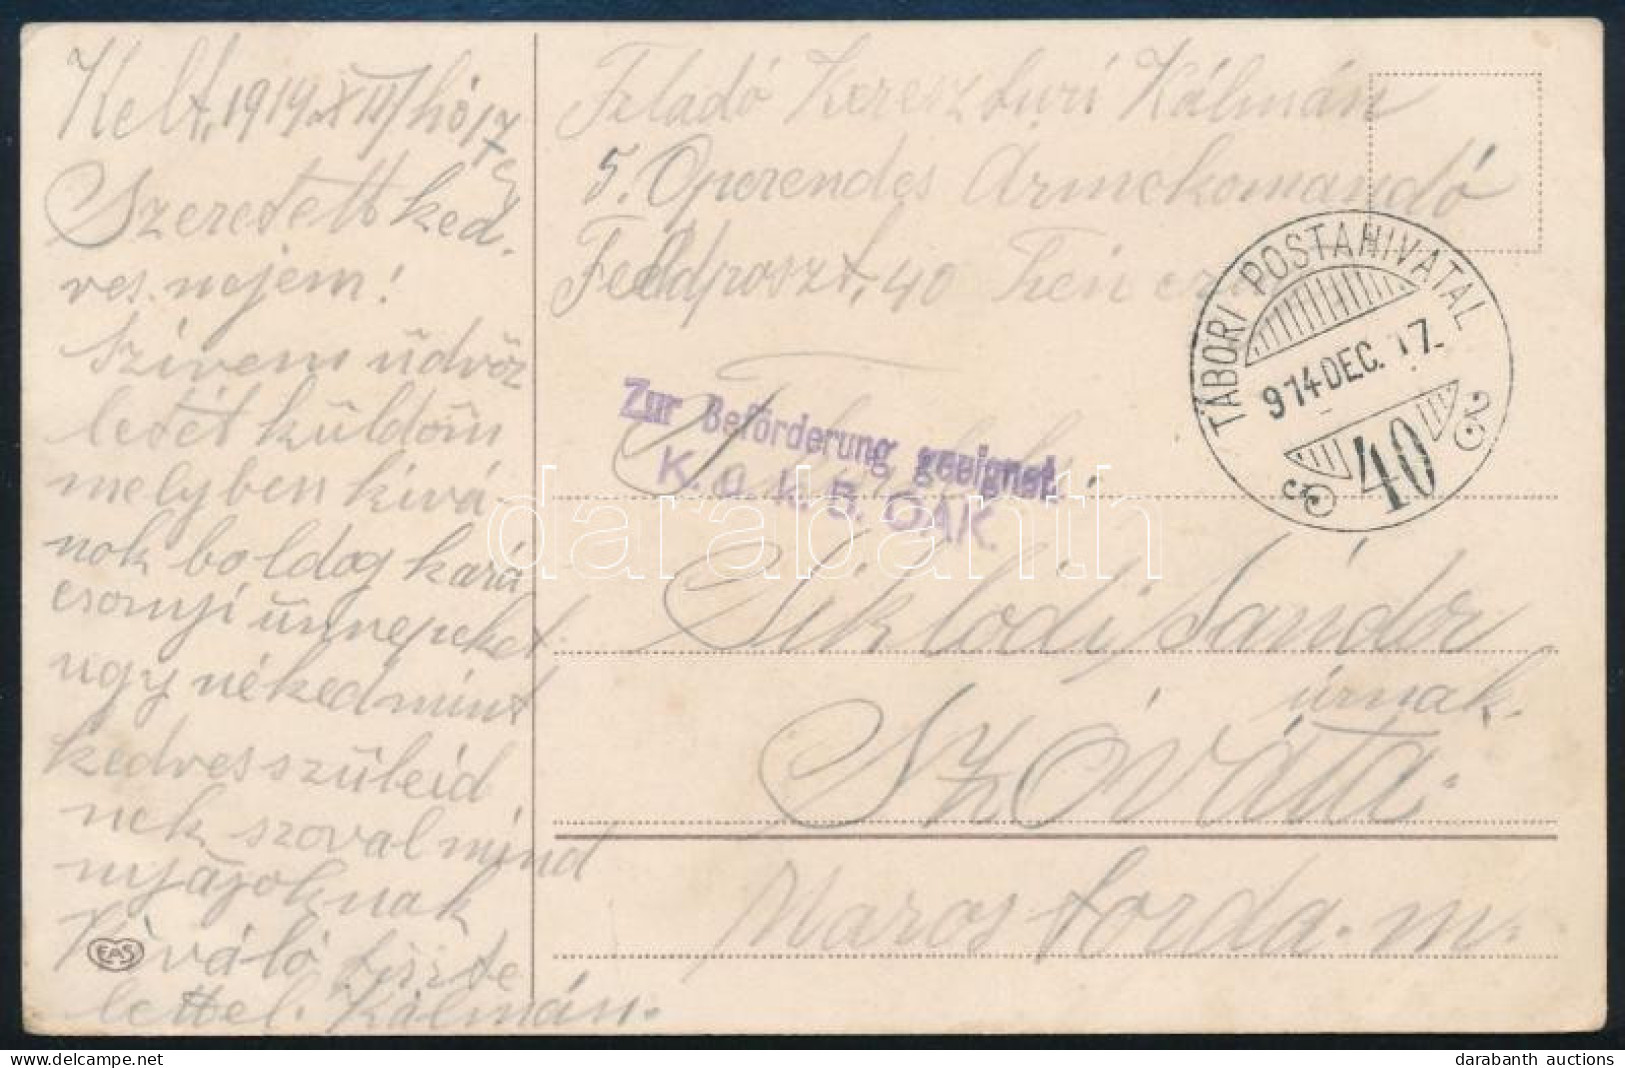 Kelt, 1914. XII/hó 17
Szeretett ked-
ves nejem!
Szivem üdvöz
letét küldöm
melyben kivá
nok boldog kará
csonyi ünnepeket
ugy néked mint
kedves szüleid
nek szoval mind
nyájoknak
Kiváló tiszte
lettel. Kálmán.
EAS
Feladó Kereszturi Kálmán
5. Operendes Armekomandó
Feldposzt, 40
TÁBORI POSTAHIVATAL
914 DEC. 17.
40
Zur Beförderung geeignet.
K. u. k. 5. OAK.
Siklodi, Sándor
úrnak.
Szováta.
Maros torda. m.
darabanth
darabanth auctions